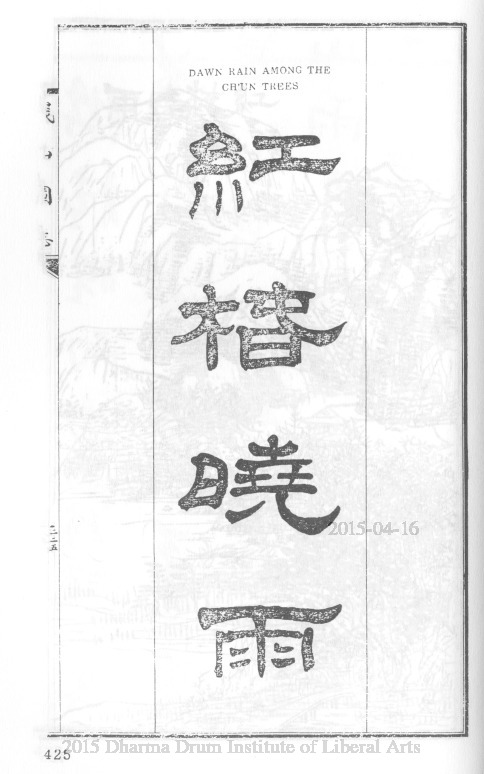 DAWN RAIN AMONG THE
CH'UN TREES
紅椿曉雨
2015-04-16
425
2015 Dharma Drum Institute of Liberal Arts